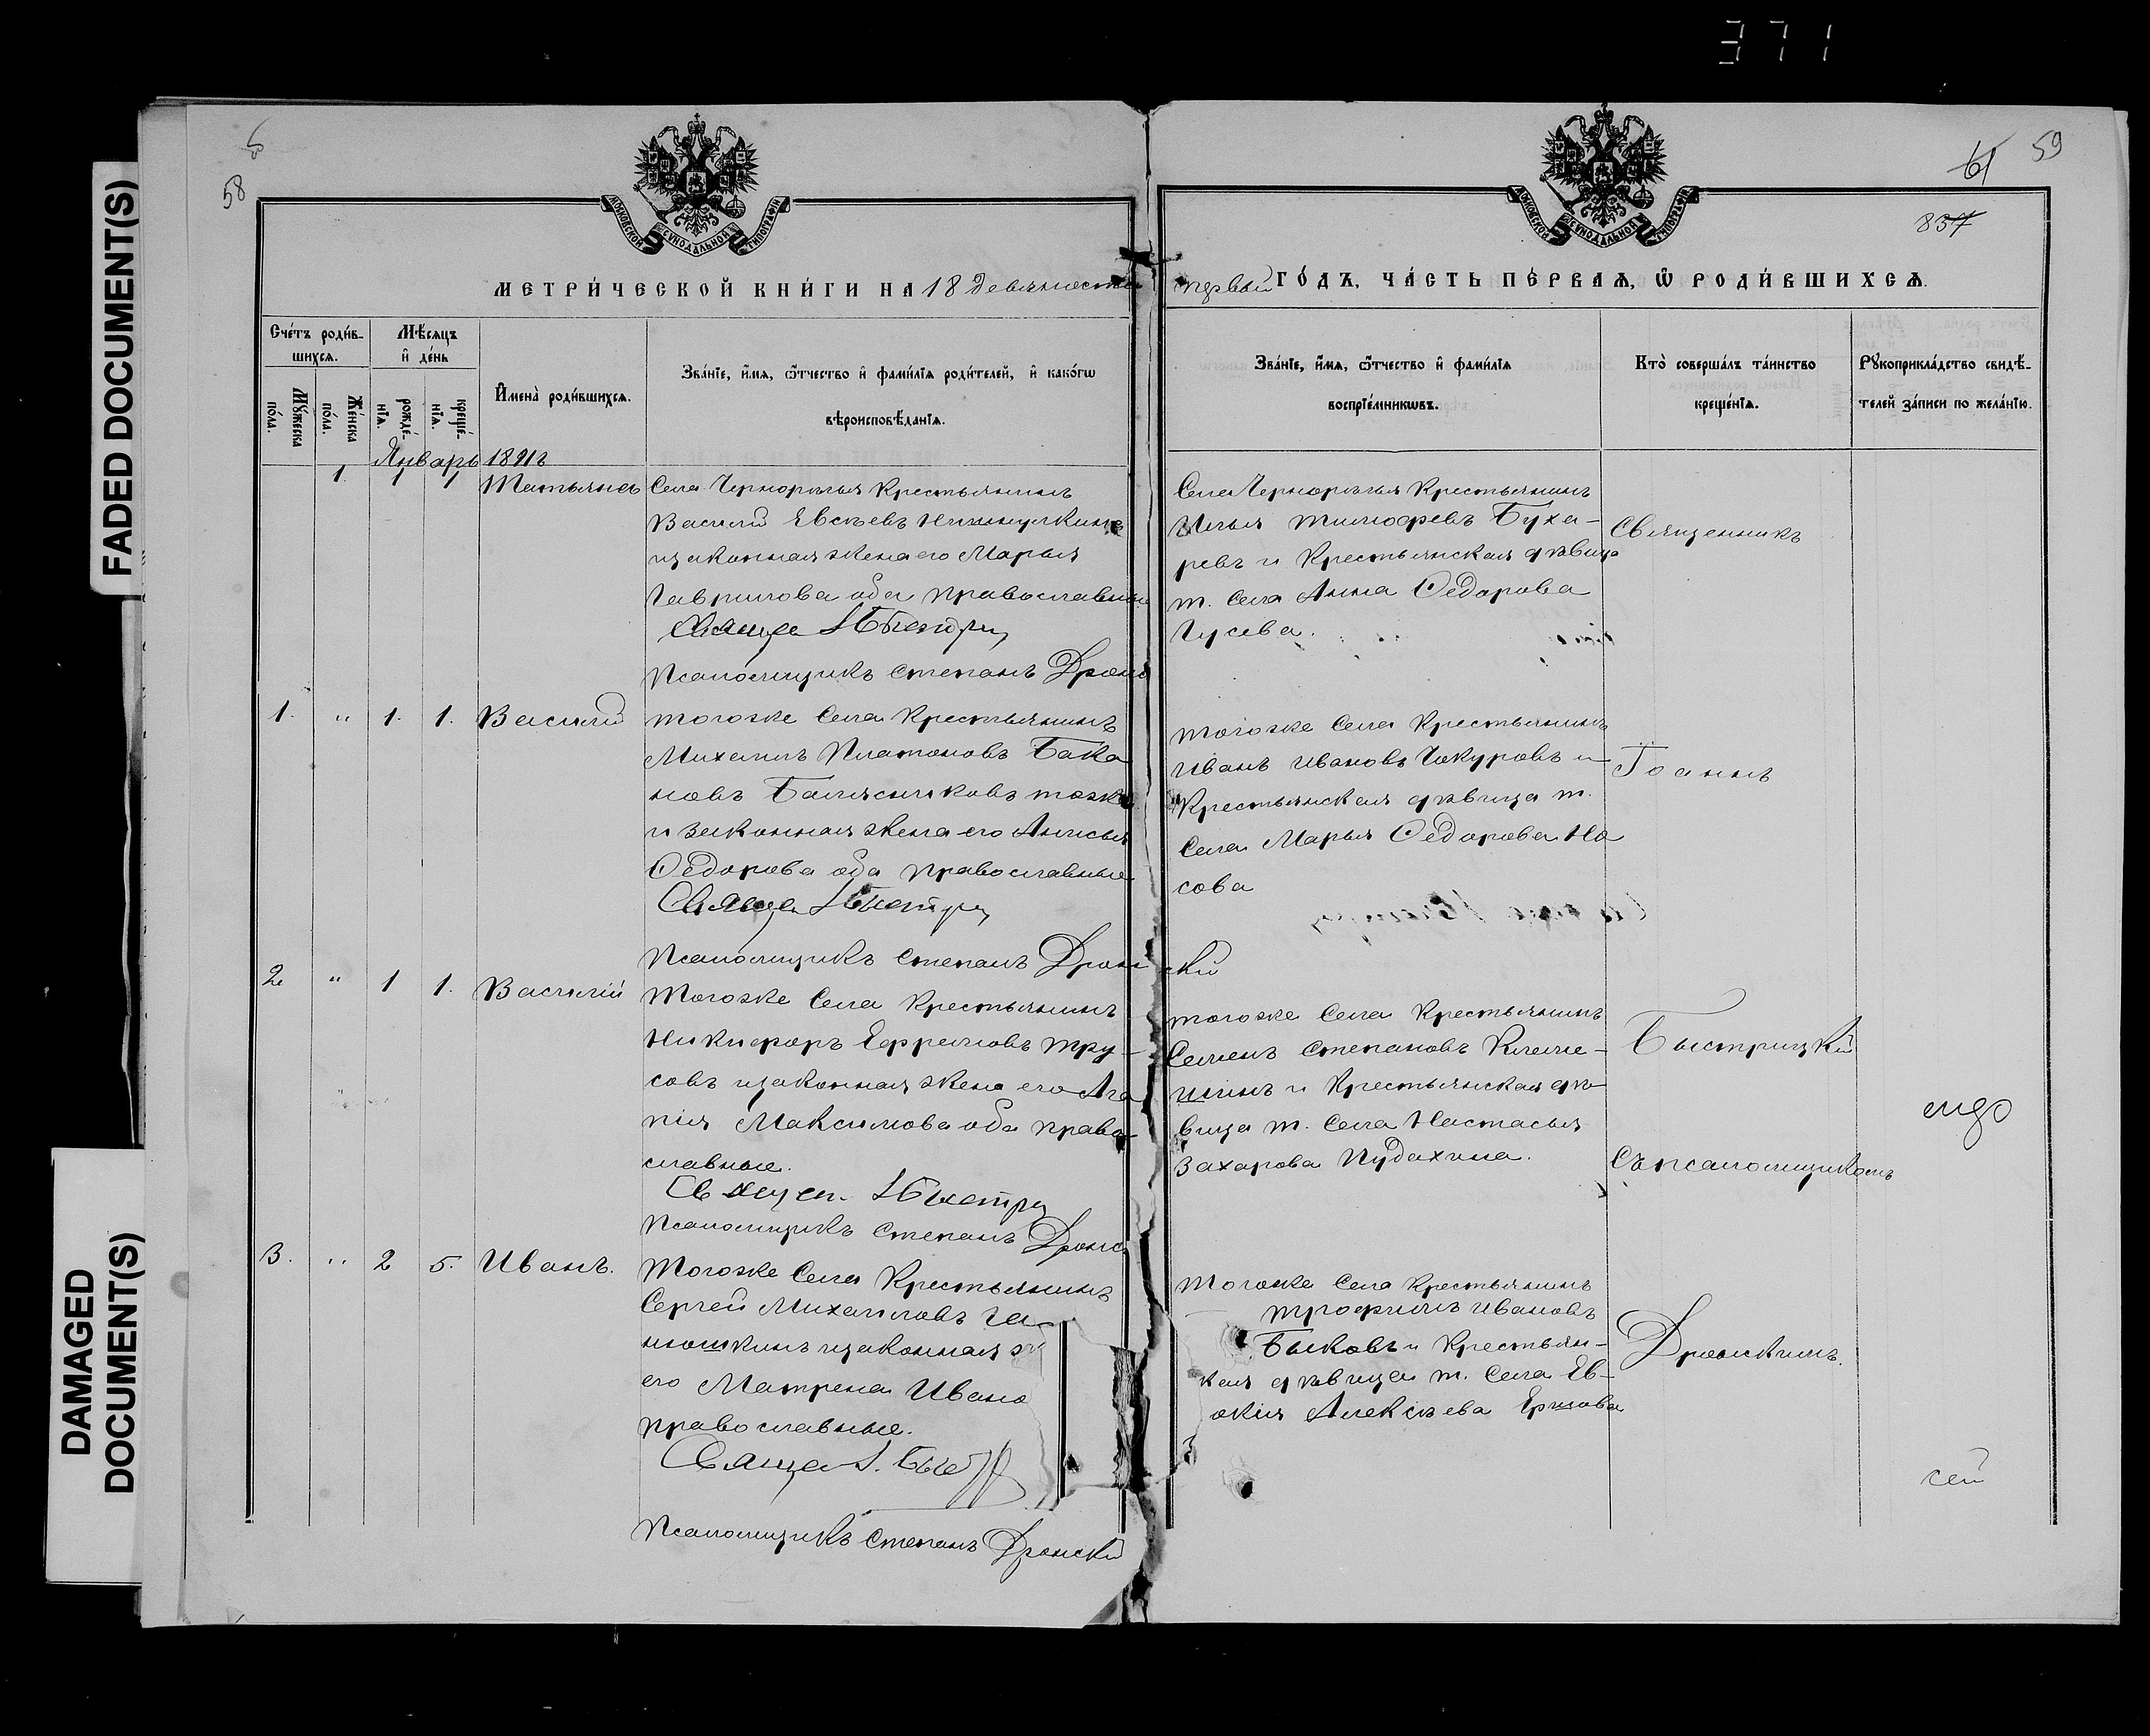 371
FADED DOCUMENT(S)
DAMAGED
DOCUMENT(S)
58
61
59
837
МОСКОВСКОЙ СѴНОДАЛЬНОЙ ТИПОГРАФІИ
МОСКОВСКОЙ СѴНОДАЛЬНОЙ ТИПОГРАФІИ
МЕТРИ́ЧЕСКОЙ КНИ́ГИ НА 18 девяносто
первый ГО́ДЪ, ЧА́СТЬ ПЕ́РВАѦ, Ѽ РОДИ́ВШИХСѦ.
Сче́тъ роди́в-
шихсѧ.
Мѣ́сѧцъ
и҆ де́нь
Мꙋ́жеска
по́ла.
Же́нска
по́ла.
рожде́-
нїѧ.
креще́-
нїѧ.
И҆мена̀ роди́вшихсѧ.
Зва́нїе, и҆́мѧ, ѻ҆́тчество и҆ фами́лїѧ роди́телей, и҆ како́гѡ
вѣроисповѣ́данїѧ.
Зва́нїе, и҆́мѧ, ѻ҆́тчество и҆ фами́лїѧ
воспрїе́мникѡвъ.
Кто̀ соверша́лъ та́инство
креще́нїѧ.
Рꙋкоприкла́дство свидѣ́-
телей за́писи по жела́нїю.
Январь 1891 г
1. 1 1 Татьяна
Села Чернорѣчья Крестьянинъ
Василий Евсѣевъ
и законная жена его Марья
Гаврилова оба православные
Священ I Быстриц
Псаломщикъ Степанъ Дронс
Села Чернорѣчья Крестьянинъ
Илья Тимофеевъ Буха-
ревъ и Крестьянская дѣвица
т. села Анна Федорова
Гусева.
Священникъ
1. " 1. 1. Василий
Тогоже Села Крестьянинъ
Михаилъ Платоновъ Бака
новъ Балясниковъ тоже
и законная жена его Анисья
Федорова оба православные
Священ I Быстриц
Псаломщикъ Степанъ Дронс
кий
тогоже Села Крестьянинъ
Иванъ Ивановъ Чокуровъ и
Крестьянская дѣвица т.
Села Марья Федорова Но
сова
Іоаннъ
2 " 1 1. Василій
Тогоже Села Крестьянинъ
Никифоръ Ефремовъ Тру-
совъ и законная жена его Ага
пія Максимова оба право-
славные.
Священ. I Быстриц
Псаломщикъ Степанъ Дронс
тогоже Села Крестьянинъ
Семенъ Степановъ Клеме-
шинъ и Крестьянская дѣ-
вица т. Села Настасья
Захарова Пудахина.
Быстрицкий
Съ псаломщикомъ
3. " 2 5. Иванъ.
Тогоже Села Крестьянинъ
Сергей Михайловъ Га-
нюшкинъ и законная ж
его Матрена Ивано
православные.
Священ I. Быс
Псаломщикъ Степанъ Дронский
Тогоже Села Крестьянинъ
Трофимъ Ивановъ
Быковъ и Крестьян-
кая дѣвица т. Села Ев-
окія Алексѣева Ершова
Дронскимъ.
сей